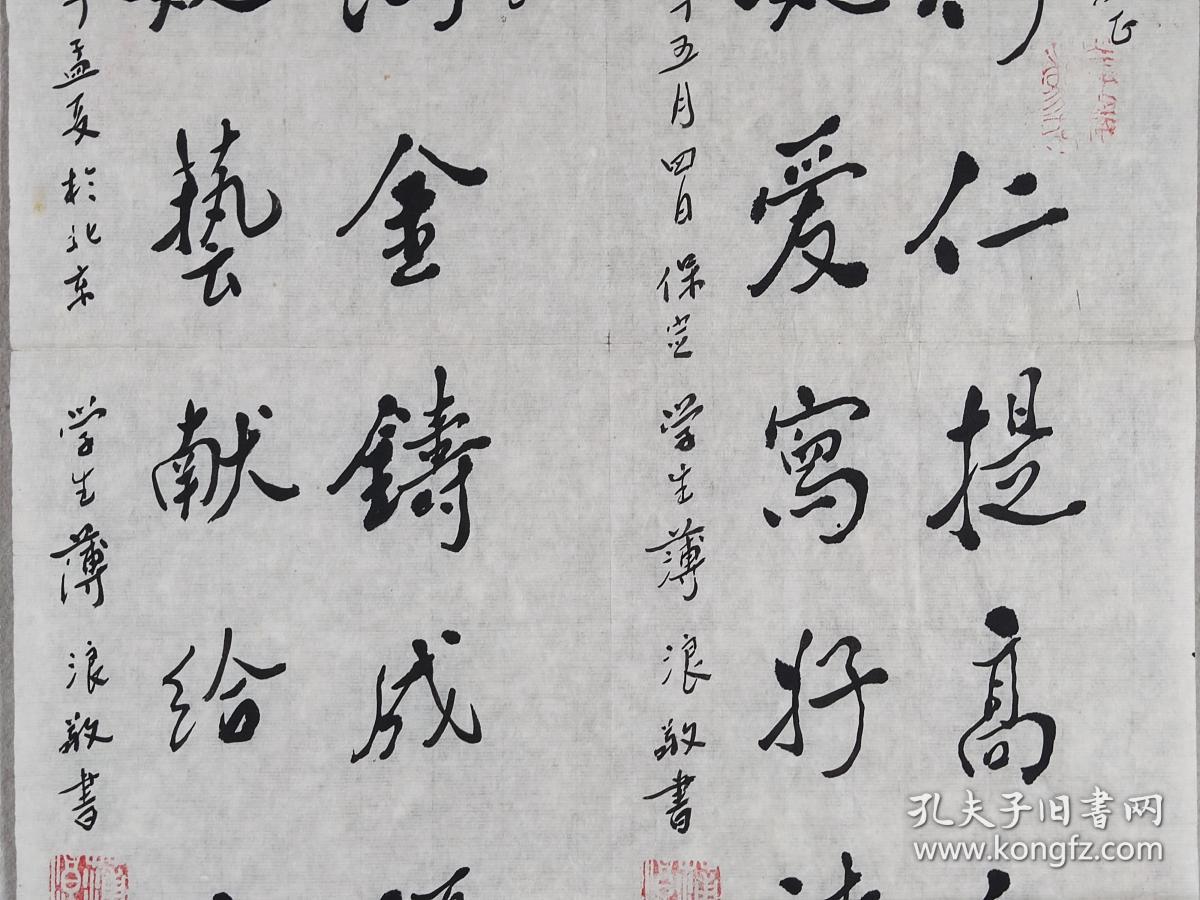 仁提高
爱写好
五月四日保定学生薄浪敬书
金鑄成
藝献给
孟夏於北京学生薄浪敬书
孔夫子旧书网
www.kongfz.com